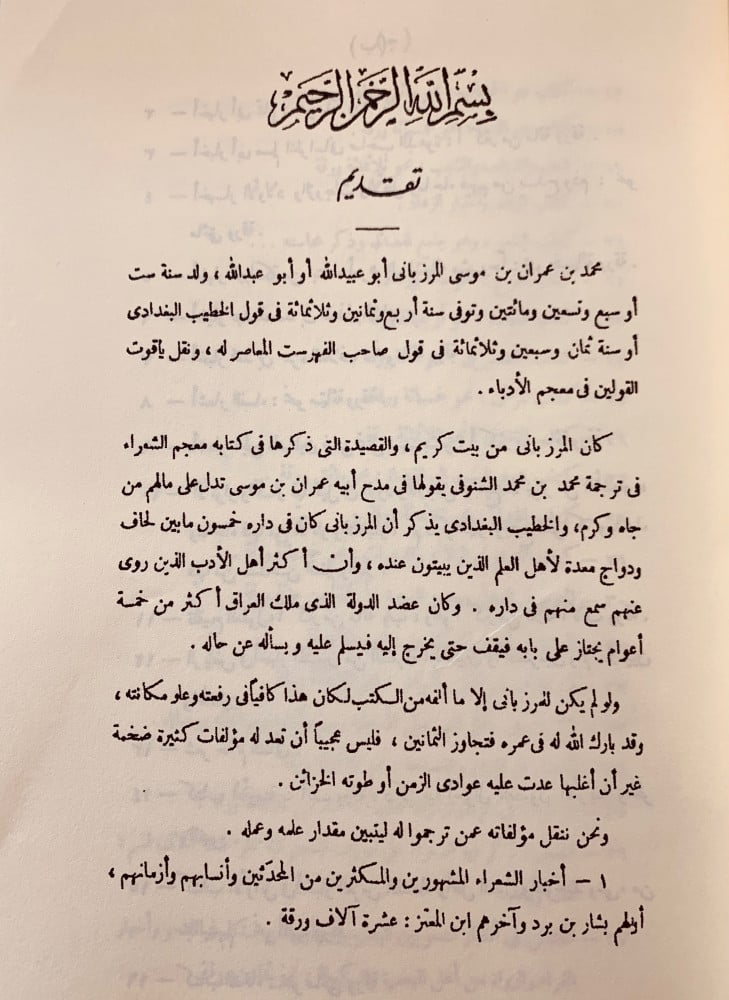 بسم الله الرحمن الرحيم
تقديم
محمد بن عمران بن موسى المرزبانى أبو عبيدالله أو أبو عبدالله ، ولد سنة ست
أو سبع وتسعين ومائتين وتوفى سنة أربع وثمانين وثلاثمائة فى قول الخطيب البغدادى
أو سنة ثمان وسبعين وثلاثمائة فى قول صاحب الفهرست المعاصر له ، ونقل ياقوت
القولين فى معجم الأدباء .
كان المرزبانى من بيت كريم ، والقصيدة التى ذكرها فى كتابه معجم الشعراء
فى ترجمة محمد بن محمد الشنوفى يقولها فى مدح أبيه عمران بن موسى تدل على مالهم من
جاه وكرم، والخطيب البغدادى يذكر أن المرزبانى كان فى داره خمسون مابين لحاف
ودواج معدة لأهل العلم الذين يبيتون عنده ، وأن أكثر أهل الأدب الذين روى
عنهم سمع منهم فى داره . وكان عضد الدولة الذى ملك العراق أكثر من خمسة
أعوام يجتاز على بابه فيقف حتى يخرج إليه فيسلم عليه ويسأله عن حاله .
ولو لم يكن للمرزبانى إلا ما ألفه من الكتب لكان هذا كافياً فى رفعته وعلو مكانته ،
وقد بارك الله له فى عمره فتجاوز الثمانين ، فليس عجيباً أن تعد له مؤلفات كثيرة ضخمة
غير أن أغلبها عدت عليه عوادى الزمن أو طوته الخزائن .
ونحن ننقل مؤلفاته عمن ترجموا له ليتبين مقدار علمه وعمله .
١ – أخبار الشعراء المشهورين والمكثرين من المحدّثين وأنسابهم وأزمانهم ،
أولهم بشار بن برد وآخرهم ابن المعتز : عشرة آلاف ورقة .